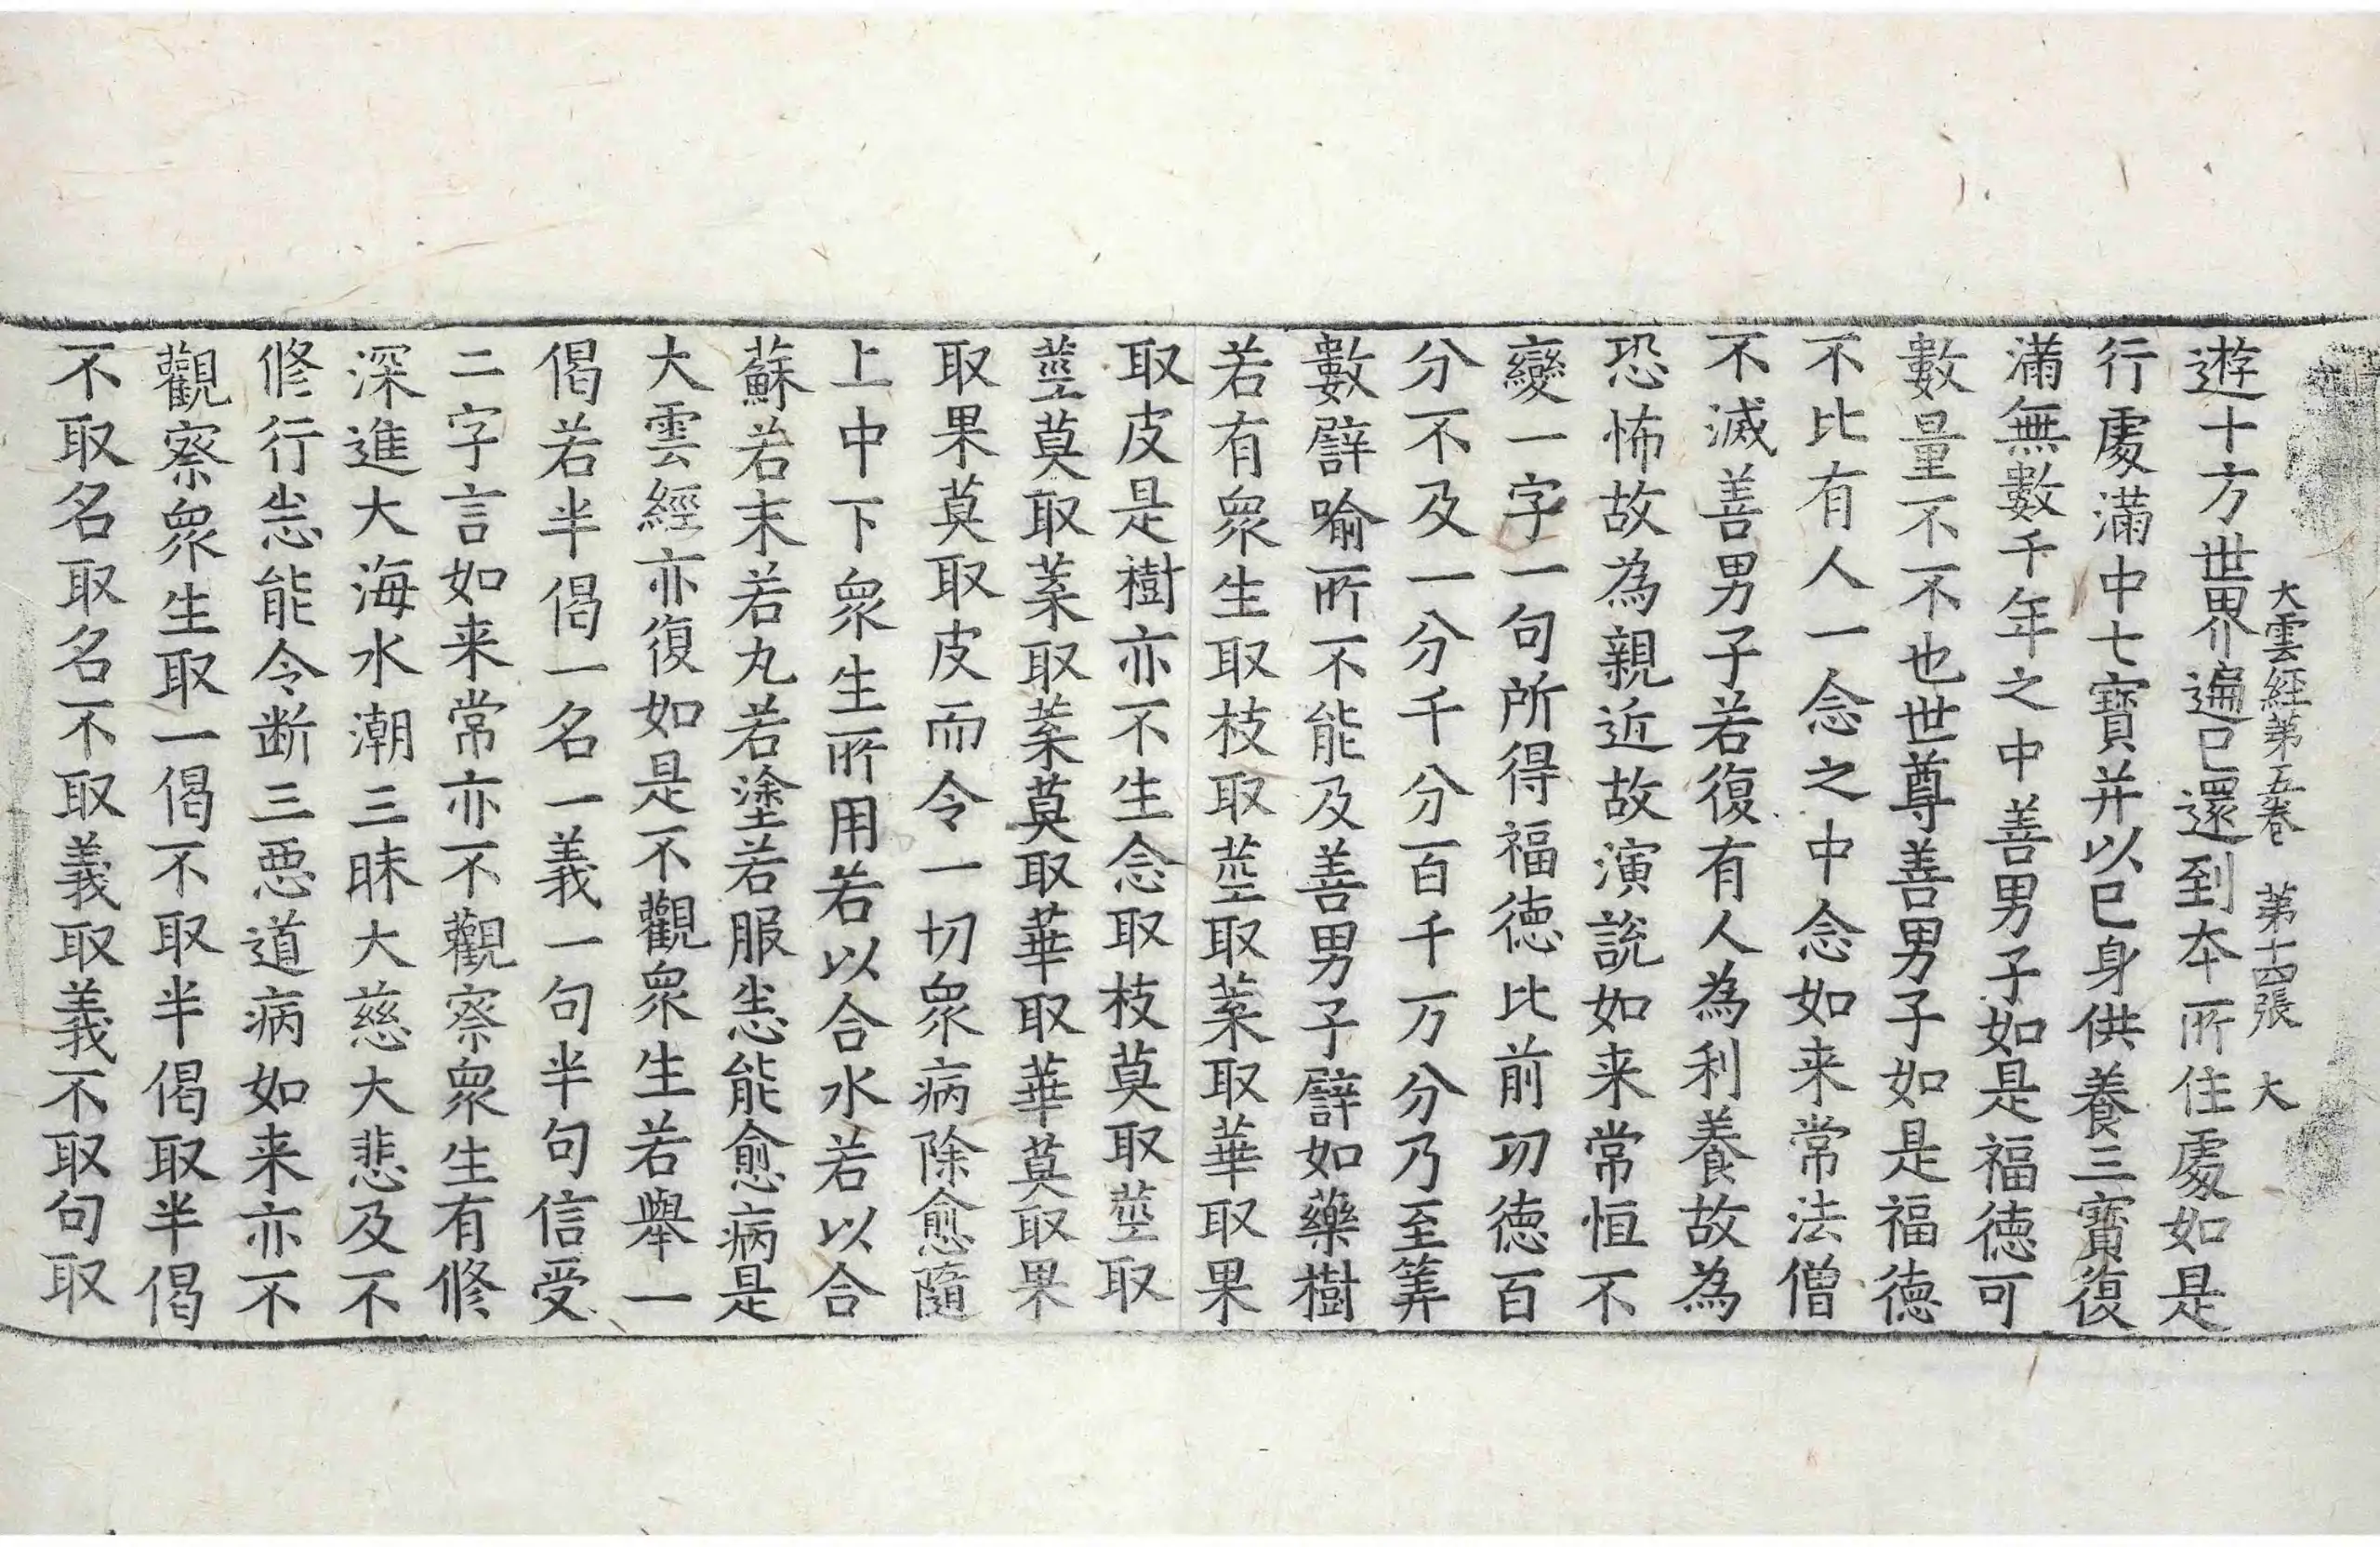 大雲経第五巻　第十四張　大
遊十方世界遍已還到本所住處如是
行處滿中七寶并以已身供養三寶復
滿無數千年之中善男子如是福徳可
數量不不也世尊善男子如是福徳
不比有人一念之中念如来常法僧
不滅善男子若復有人為利養故為
恐怖故為親近故演說如来常恒不
變一字一句所得福徳比前功徳百
分不及一分千分百千万分乃至筭
數譬喻所不能及善男子譬如藥樹
若有衆生取枝取莖取葉取華取果
取皮是樹亦不生念取枝莫取莖取
莖莫取葉取葉莫取華取華莫取果
取果莫取皮而令一切衆病除愈隨
上中下衆生所用若以合水若以合
蘇若末若丸若塗若服悉能愈病是
大雲經亦復如是不觀衆生若舉一
偈若半偈一名一義一句半句信受
二字言如来常亦不觀察衆生有修
深進大海水潮三昧大慈大悲及不
修行悉能令断三惡道病如来亦不
觀察衆生取一偈不取半偈取半偈
不取名取名不取義取義不取句取